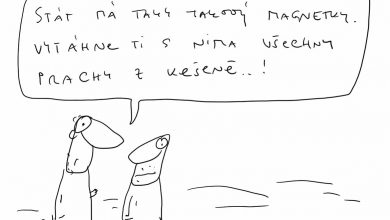 STÁT MÁ TAKY TAKOVÝ MAGNETKY.
VYTÁHNE TI S NIMA VŠECHNY
PRACHY Z KEŠENĚ..!